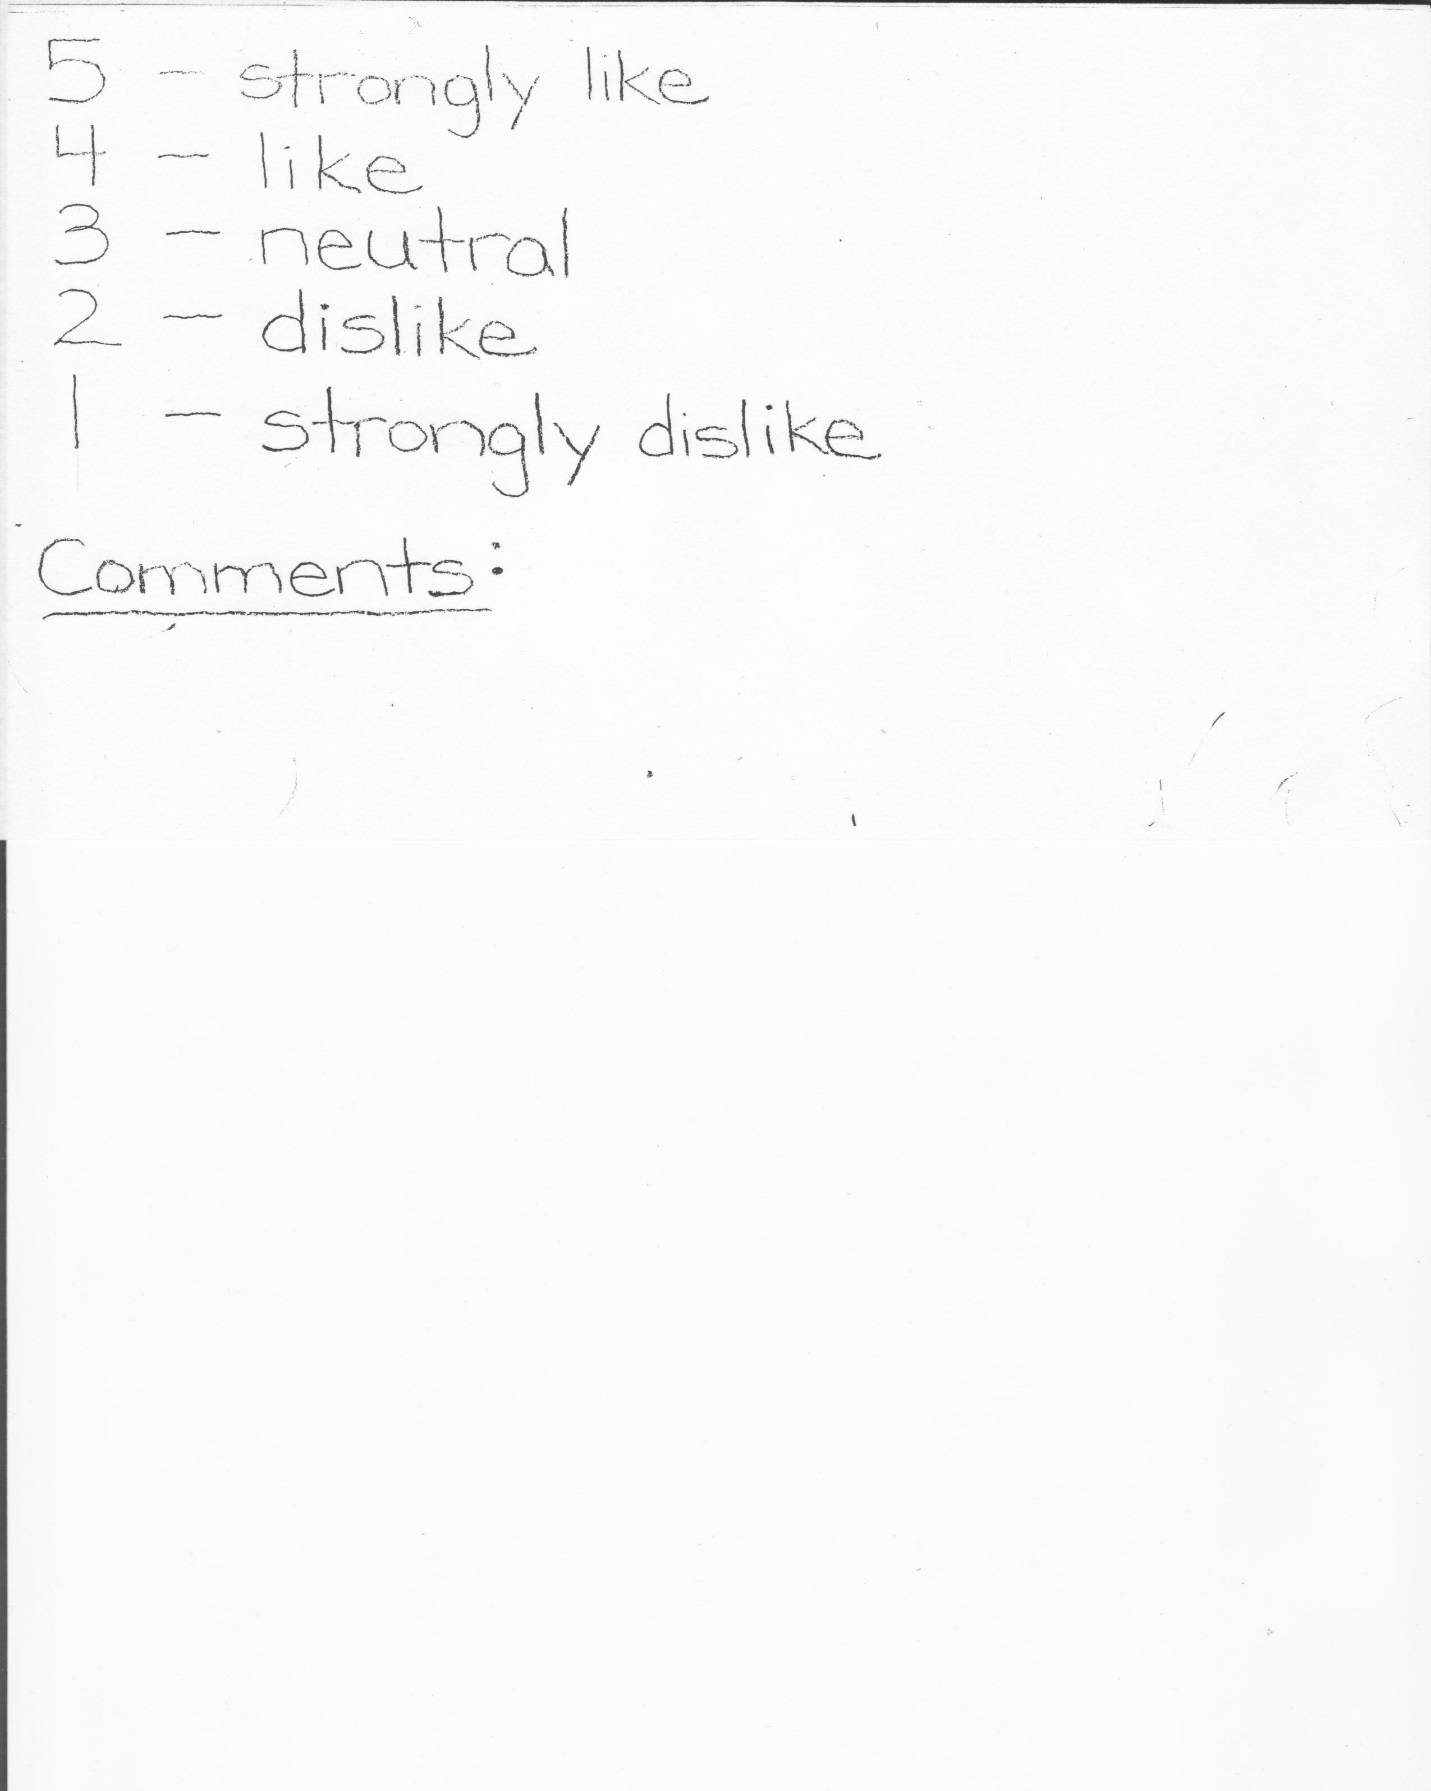 5 - strongly like
4 - like
3 - neutral
2 - dislike
1 - strongly dislike
Comments: